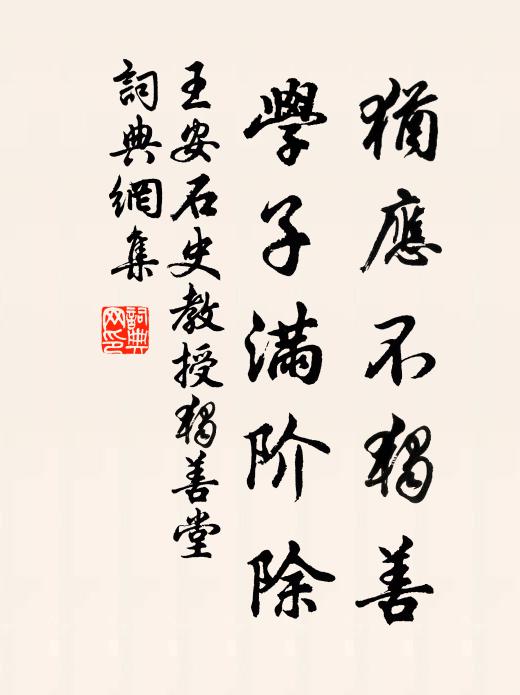 猶應不獨善
學子滿阶除
王安石史教授獨善堂
詞典網集
詞典网印